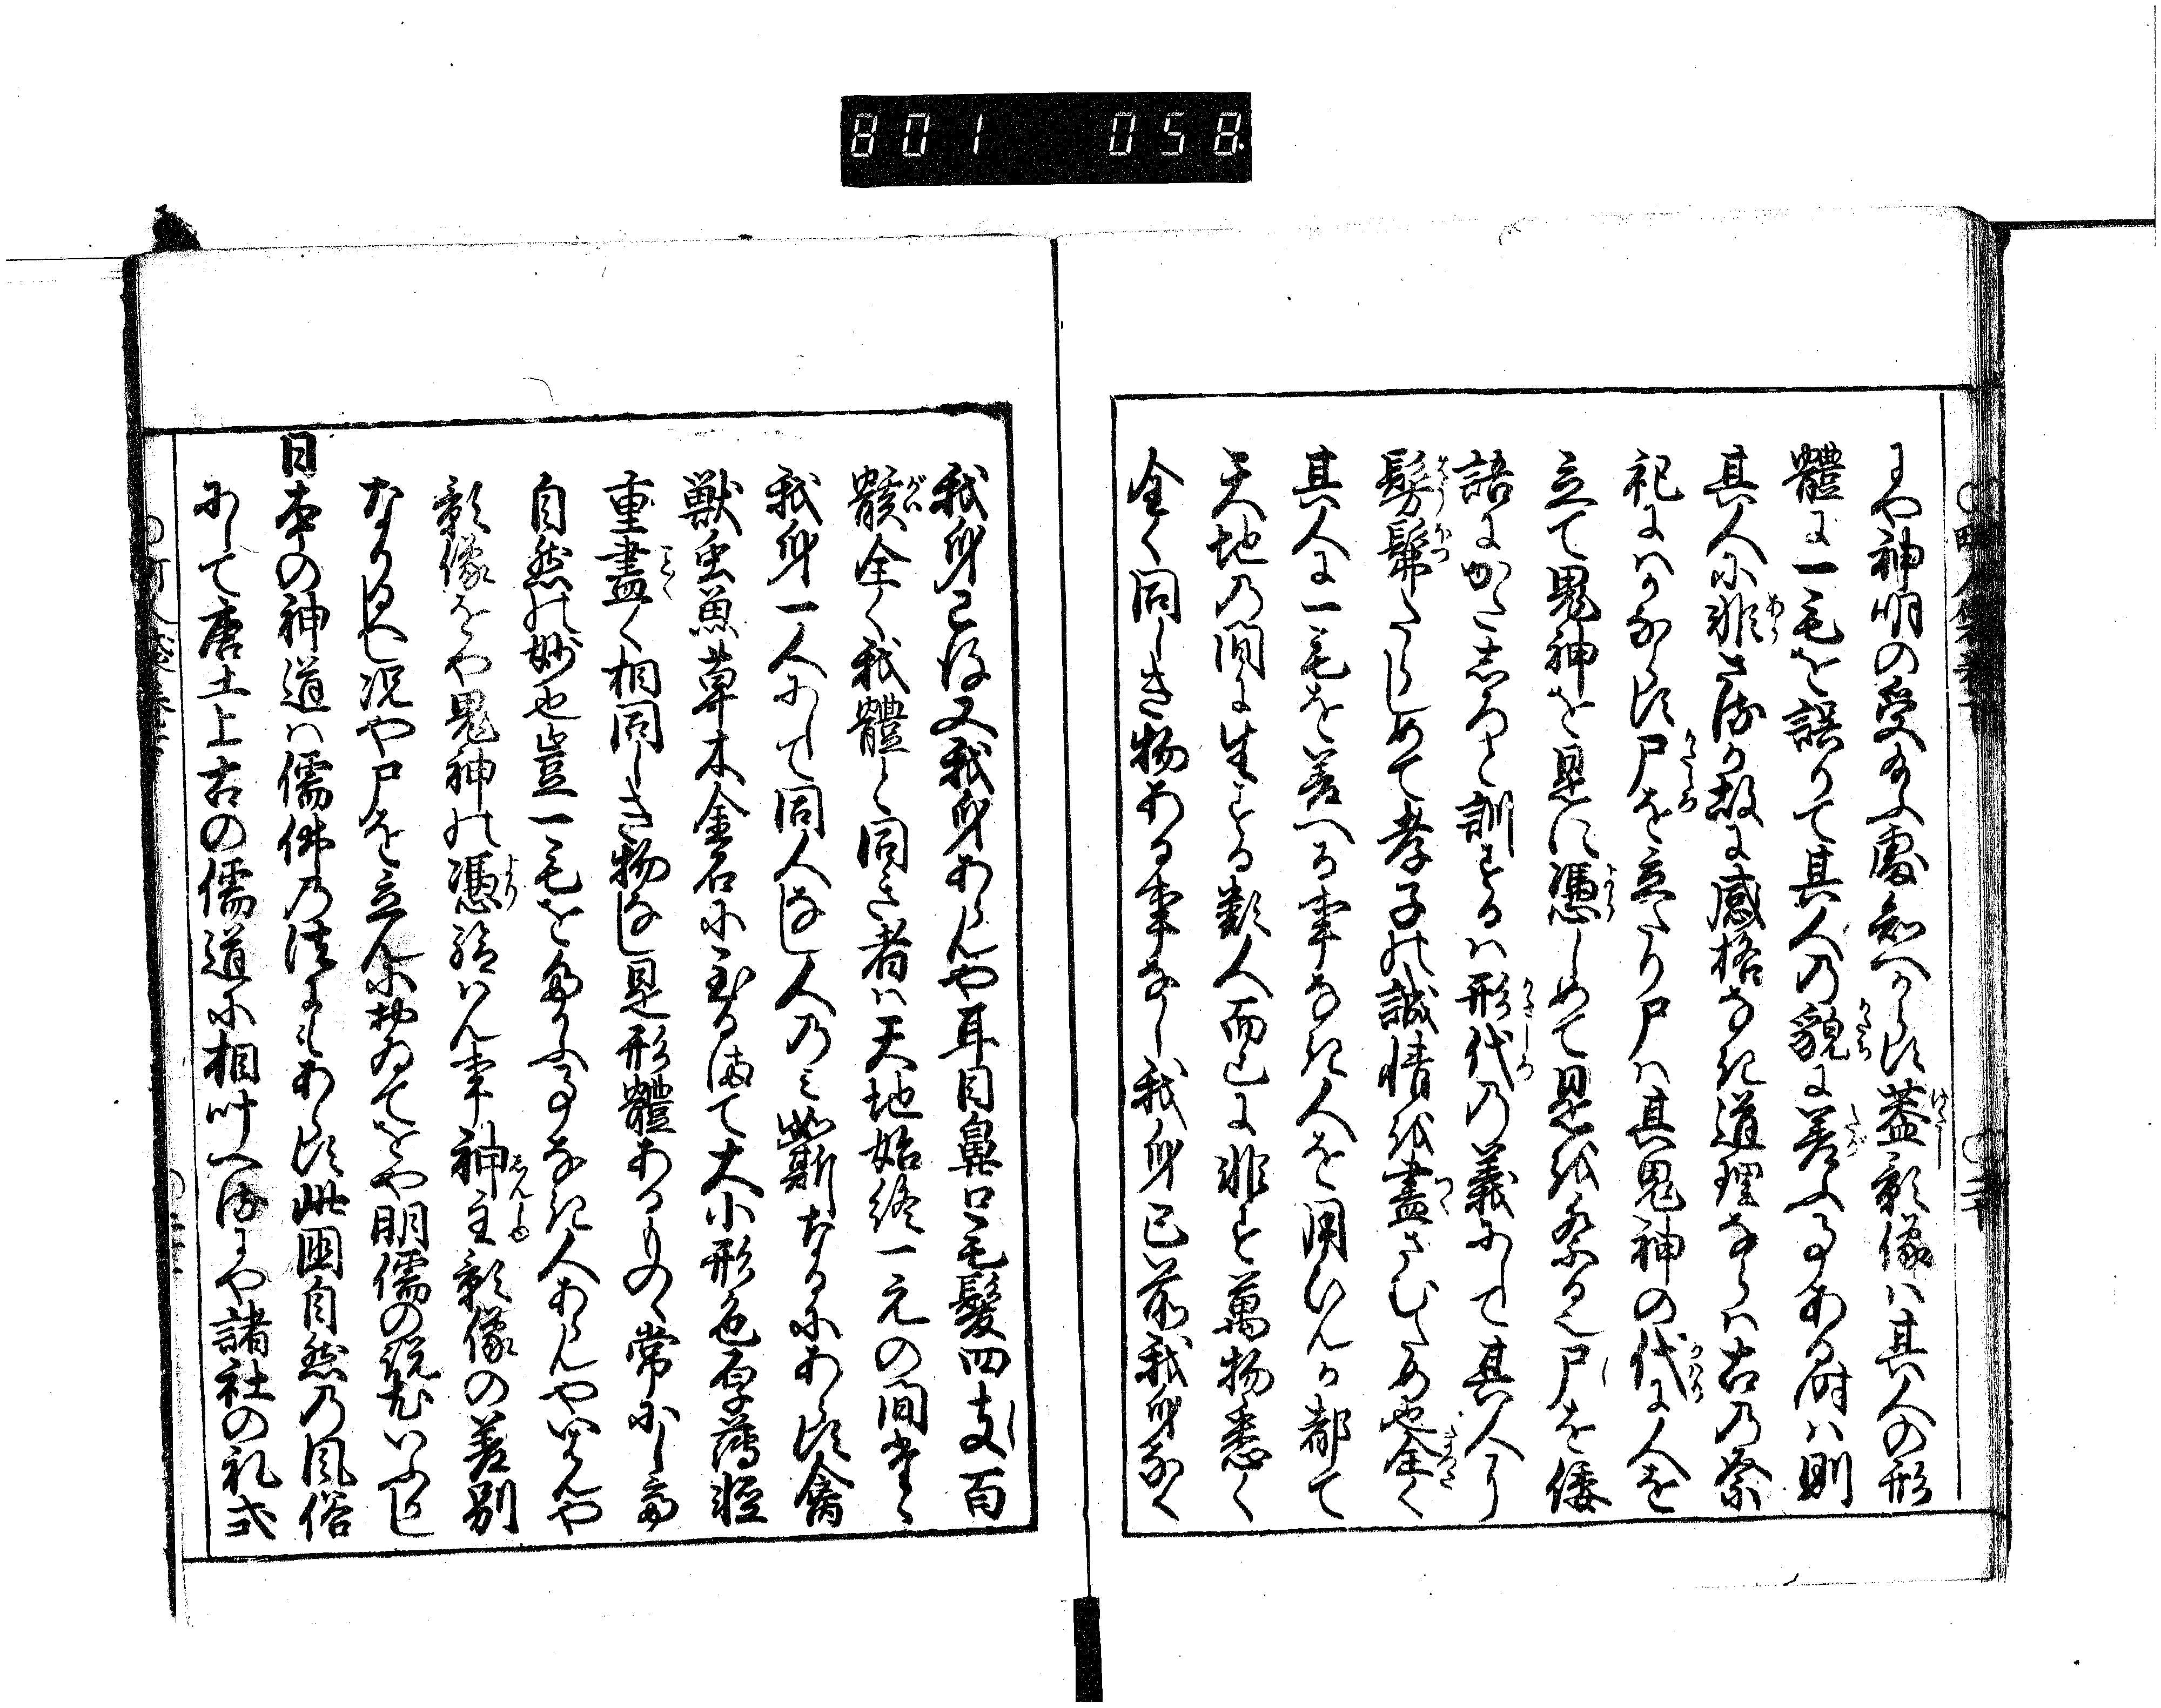 801 058
にや神明の受給ふ處知へからす蓋影像は其人の形
體に一毛を誤りて其人の貌に差ふ事ある時は則
其人に非さるか故に感格なき道理ならは古の祭
祀にはかならす尸を立たり尸は其鬼神の代に人を
立て鬼神を是に憑しめて是を祭る也尸を倭
語にかたしろと訓する は形代の義にして其人に
髣髴たらしめて孝子の誠情を盡さむため也全く
其人に一毛を差へる事なき人を用ひんか都て
天地の間に生する類人而已に非す萬物悉く
全く同しき物ある事なし我身已前我身なく
我身已後又我身あらんや耳目鼻口毛髪四支百
骸全く我體と同き者は天地始終一元の間たゝ
我身一人にして同人なし人のみ如斯なるにあらす禽
獣虫魚草木金石に至るまて大小形色厚薄軽
重盡く相同しき物なし是形體あるものゝ常にして
自然の妙也豈一毛をたかふ事なき人あらんやいはんや
影像をや鬼神の憑給はん事神主影像の差別
なりかたし況や尸を立んにおゐてをや明儒の説尤いふかし
日本の神道は儒佛の法にもあらす此国自然の風俗
にして唐土上古の儒道に相叶へるにや諸社の礼式